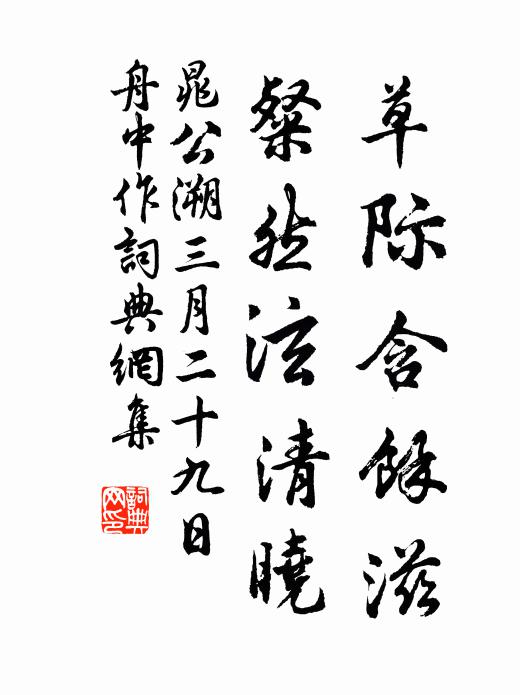 草际含餘滋
粲然泫清曉
晁公溯三月二十九日
舟中作詞典網集
詞典
网印